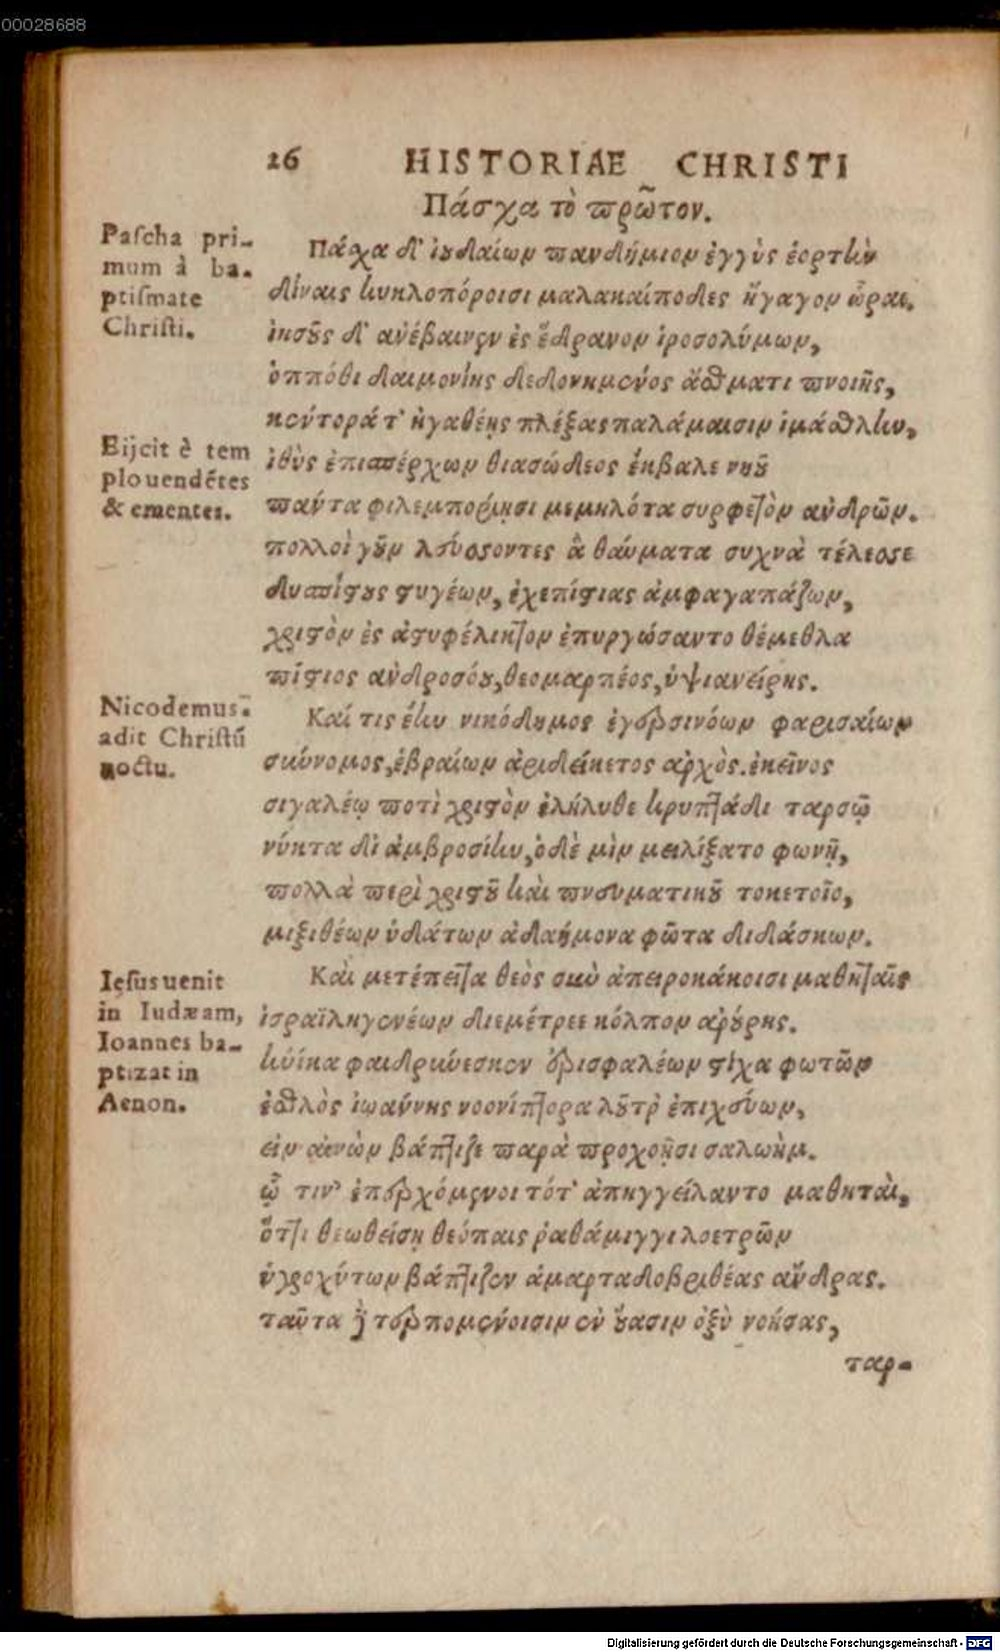 00028688
26 HISTORIAE CHRISTI
Πάσχα τὸ πρῶτον.
Pascha pri-
mum à ba-
ptismate
Christi.
Πάχα δ' ἰουδαίων πανδήμιον ἐγγὺς ἑορτὴν
δίναις κυκλοπόροισι μαλακαίποδες ἤγαγον ὧραι.
ἰησοῦς δ' ἀνέβαινεν ἐς ἕδρανον ἱροσολύμων,
ὁππόθι δαιμονίης δεδονημένος ἄσθματι πνοιῆς,
κέντορά τ' ἠγαθέης πλέξας παλάμαισιν ἱμάσθλην,
Eijcit è tem
plo uendẽtes
& ementes.
ἰθὺς ἐπισπέρχων θιασώδεος ἔκβαλε νηοῦ
πάντα φιλεμπορίῃσι μεμηλότα συρφετὸν ἀνδρῶν.
πολλοὶ γοῦν λεύσσοντες ἃ θαύματα συχνὰ τέλεσσε
δυσπίστους στυγέων, ἐχεπίστιας ἀμφαγαπάζων,
χριστὸν ἐς ἀστυφέλικτον ἐπυργώσαντο θέμεθλα
πίστιος ἀνδροσόου, θεομαρπέος, ὑψιανείρης.
Nicodemus
adit Christũ
noctu.
Καί τις ἔην νικόδημος ἐγερσινόων φαρισαίων
σκύνομος, ἑβραίων ἀριδείκετος ἀρχὸς. ἐκεῖνος
σιγαλέῳ ποτὶ χριστὸν ἐλήλυθε κρυπτάδι ταρσῷ
νύκτα δι' ἀμβροσίην, ὁ δὲ μὶν μειλίξατο φωνῇ,
πολλὰ περὶ χριστοῦ καὶ πνευματικοῦ τοκετοῖο,
μιξιθέων ὑδάτων ἀδαήμονα φῶτα διδάσκων.
Iesus uenit
in Iudæam,
Ioannes ba-
ptizat in
Aenon.
Καὶ μετέπειτα θεὸς σὺν ἀπειροκάκοισι μαθηταῖς
ἰσραϊληγενέων διεμέτρεε κόλπον ἀρούρης.
ἡνίκα φαιδρύνεσκεν ἐρισφαλέων στίχα φωτῶν
ἐσθλὸς ἰωάννης νοονίπτορα λοῦτρ' ἐπιχεύων,
εἰν αἰνὼν βάπτιζε παρὰ προχοῇσι σαλωὴμ.
ᾧ τιν' ἐπερχόμενοι τότ' ἀπηγγείλαντο μαθηταὶ,
ὅττι θεωθείσῃ θεόπαις ῥαθάμιγγι λοετρῶν
ὑγροχύτων βάπτιζεν ἁμαρταδοβριθέας ἄνδρας.
ταῦτα ἢ τερπομένοισιν ἐν οὔασιν ὀξὺ νοήσας,
ταρ-
Digitalisierung gefördert durch die Deutsche Forschungsgemeinschaft - DFG